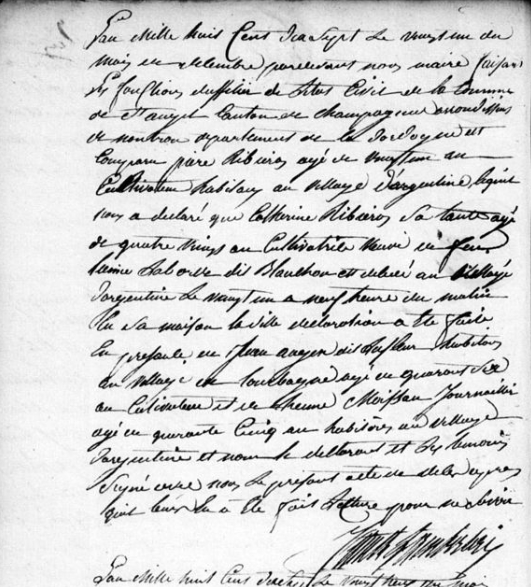 L'an Mille huit Cent dix Sept Le vingt un du
mois de décembre pardevant nous maire faisant
les fonctions d'officier de L'état Civil de la Commune
de Canton de champagnac arrondisse
de nontron département de la Dordogne est
Comparu Ribieros agé de vingt un an
Cultivateur habitant au village d'argentine, lequel
nous a déclaré que Catherine Ribieros Sa tante agé
de quatre vingt an Cultivatrice veuve de feu
Laborde dit Blanchon est décédé au village
d'argentine Le vingt un a neuf heure du matin
En Sa maison la ditte declaration a été faite
En presence de Jean dit habitant
au village de agé de quarante Six
an Cultivateur et de Journallier
agé de quarante Cinq an habitant au village
d'argentine et nous le déclarant et Les temoins
Signé avec nous Le présent acte de décès apres
quil leurs La a été fait Lecture pour
L'an Mille huit Cent dix Sept Le vingt